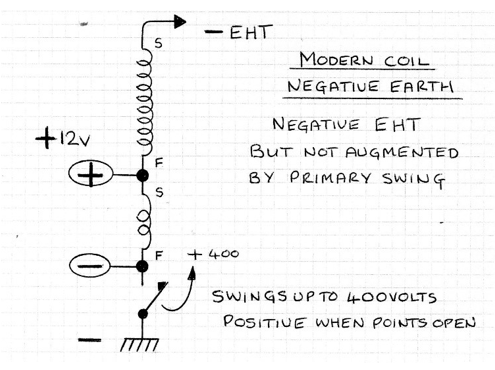 S
- EHT
MODERN COIL
NEGATIVE EARTH
NEGATIVE EHT
BUT NOT AUGMENTED
BY PRIMARY SWING
+12V
F
+
S
F
-
+400
SWINGS UP TO 400VOLTS
POSITIVE WHEN POINTS OPEN
-